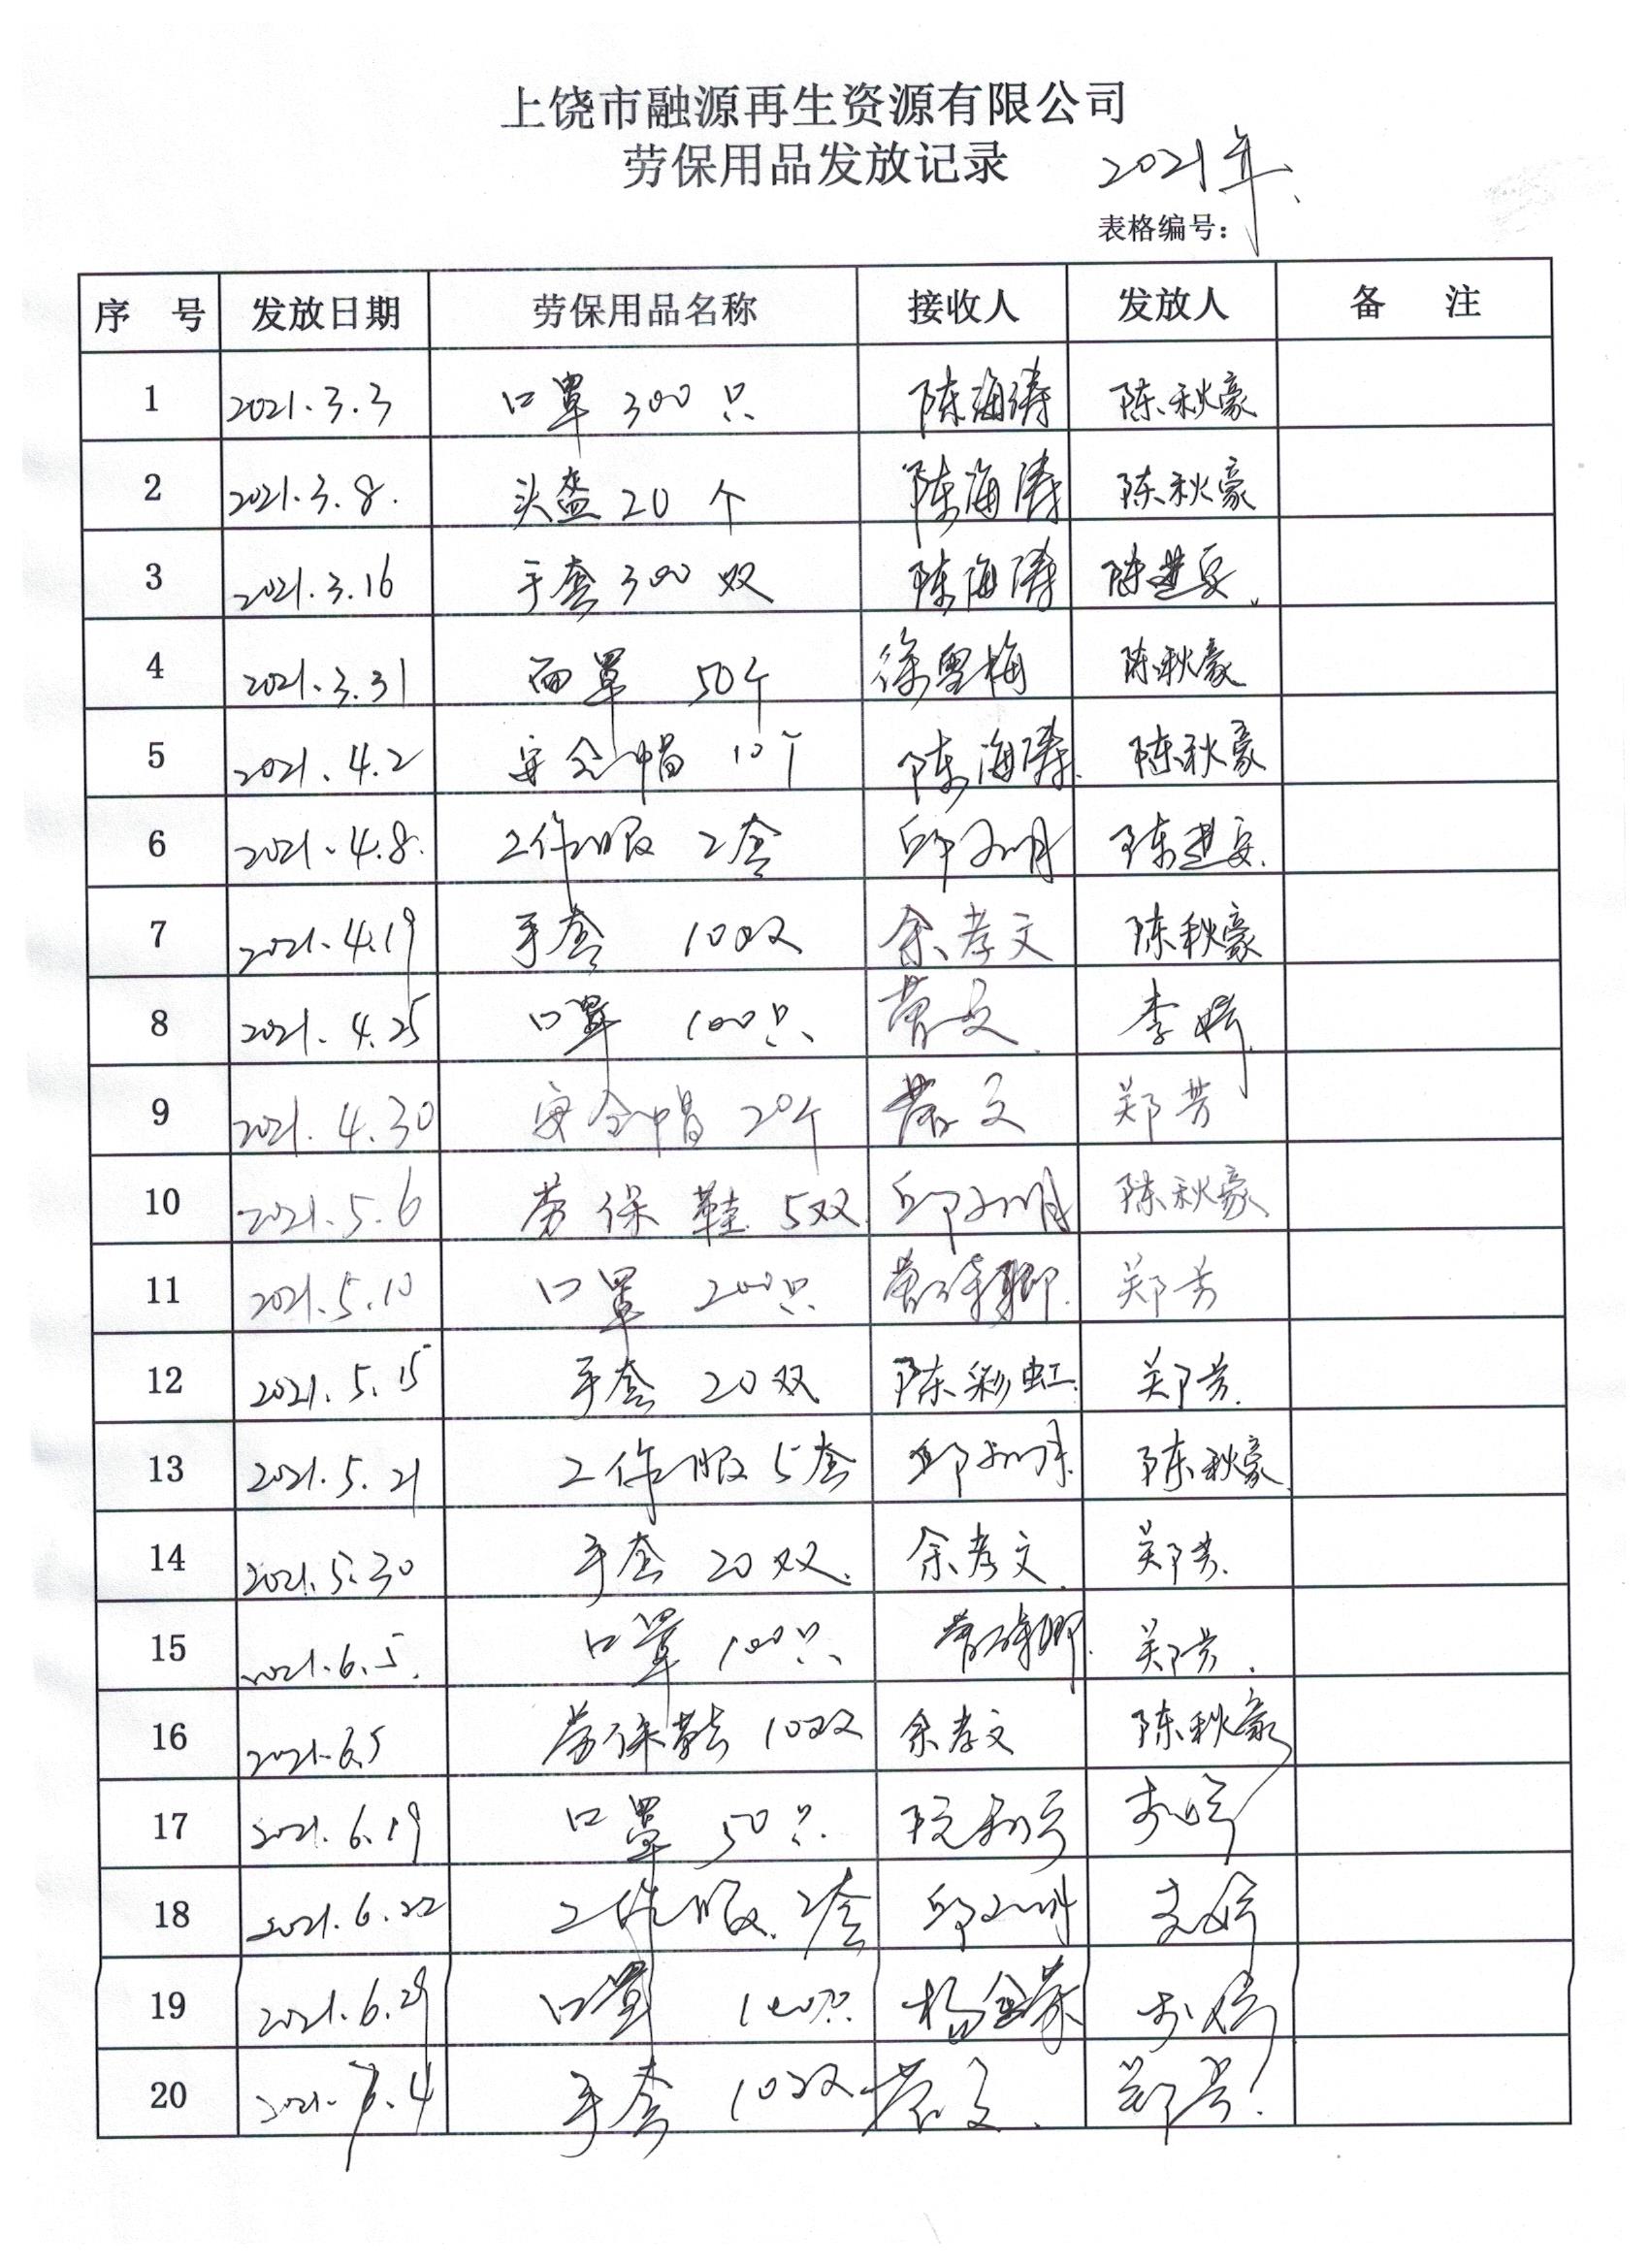 上饶市融源再生资源有限公司
劳保用品发放记录 2021年
表格编号：
序 号 发放日期 劳保用品名称 接收人 发放人 备 注
1 2021.3.3 口罩 300 只 陈海涛 陈秋豪
2 2021.3.8. 头盔 20 个 陈海涛 陈秋豪
3 2021.3.16 手套 300 双 陈海涛 陈进
4 2021.3.31 面罩 50个 徐雪梅 陈秋豪
5 2021.4.2 安全帽 10个 陈海涛 陈秋豪
6 2021.4.8. 工作服 2套 邱 陈进
7 2021.4.19 手套 10双 余孝文 陈秋豪
8 2021.4.25 口罩 100只 文 李婷
9 2021.4.30 安全帽 20个 文 郑芳
10 2021.5.6 劳保鞋 5双 邱 陈秋豪
11 2021.5.10 口罩 200只 郑芳
12 2021.5.15 手套 20双 陈彩虹 郑芳
13 2021.5.21 工作服 5套 邱 陈秋豪
14 2021.5.30 手套 20双 余孝文 郑芳
15 2021.6.5. 口罩 100只 郑芳
16 2021.6.5 劳保鞋 10双 余孝文 陈秋豪
17 2021.6.19 口罩 50只
18 2021.6.22 工作服 2套 邱
19 2021.6.29 口罩 100只 杨
20 2021.7.4 手套 10双 文 郑芳